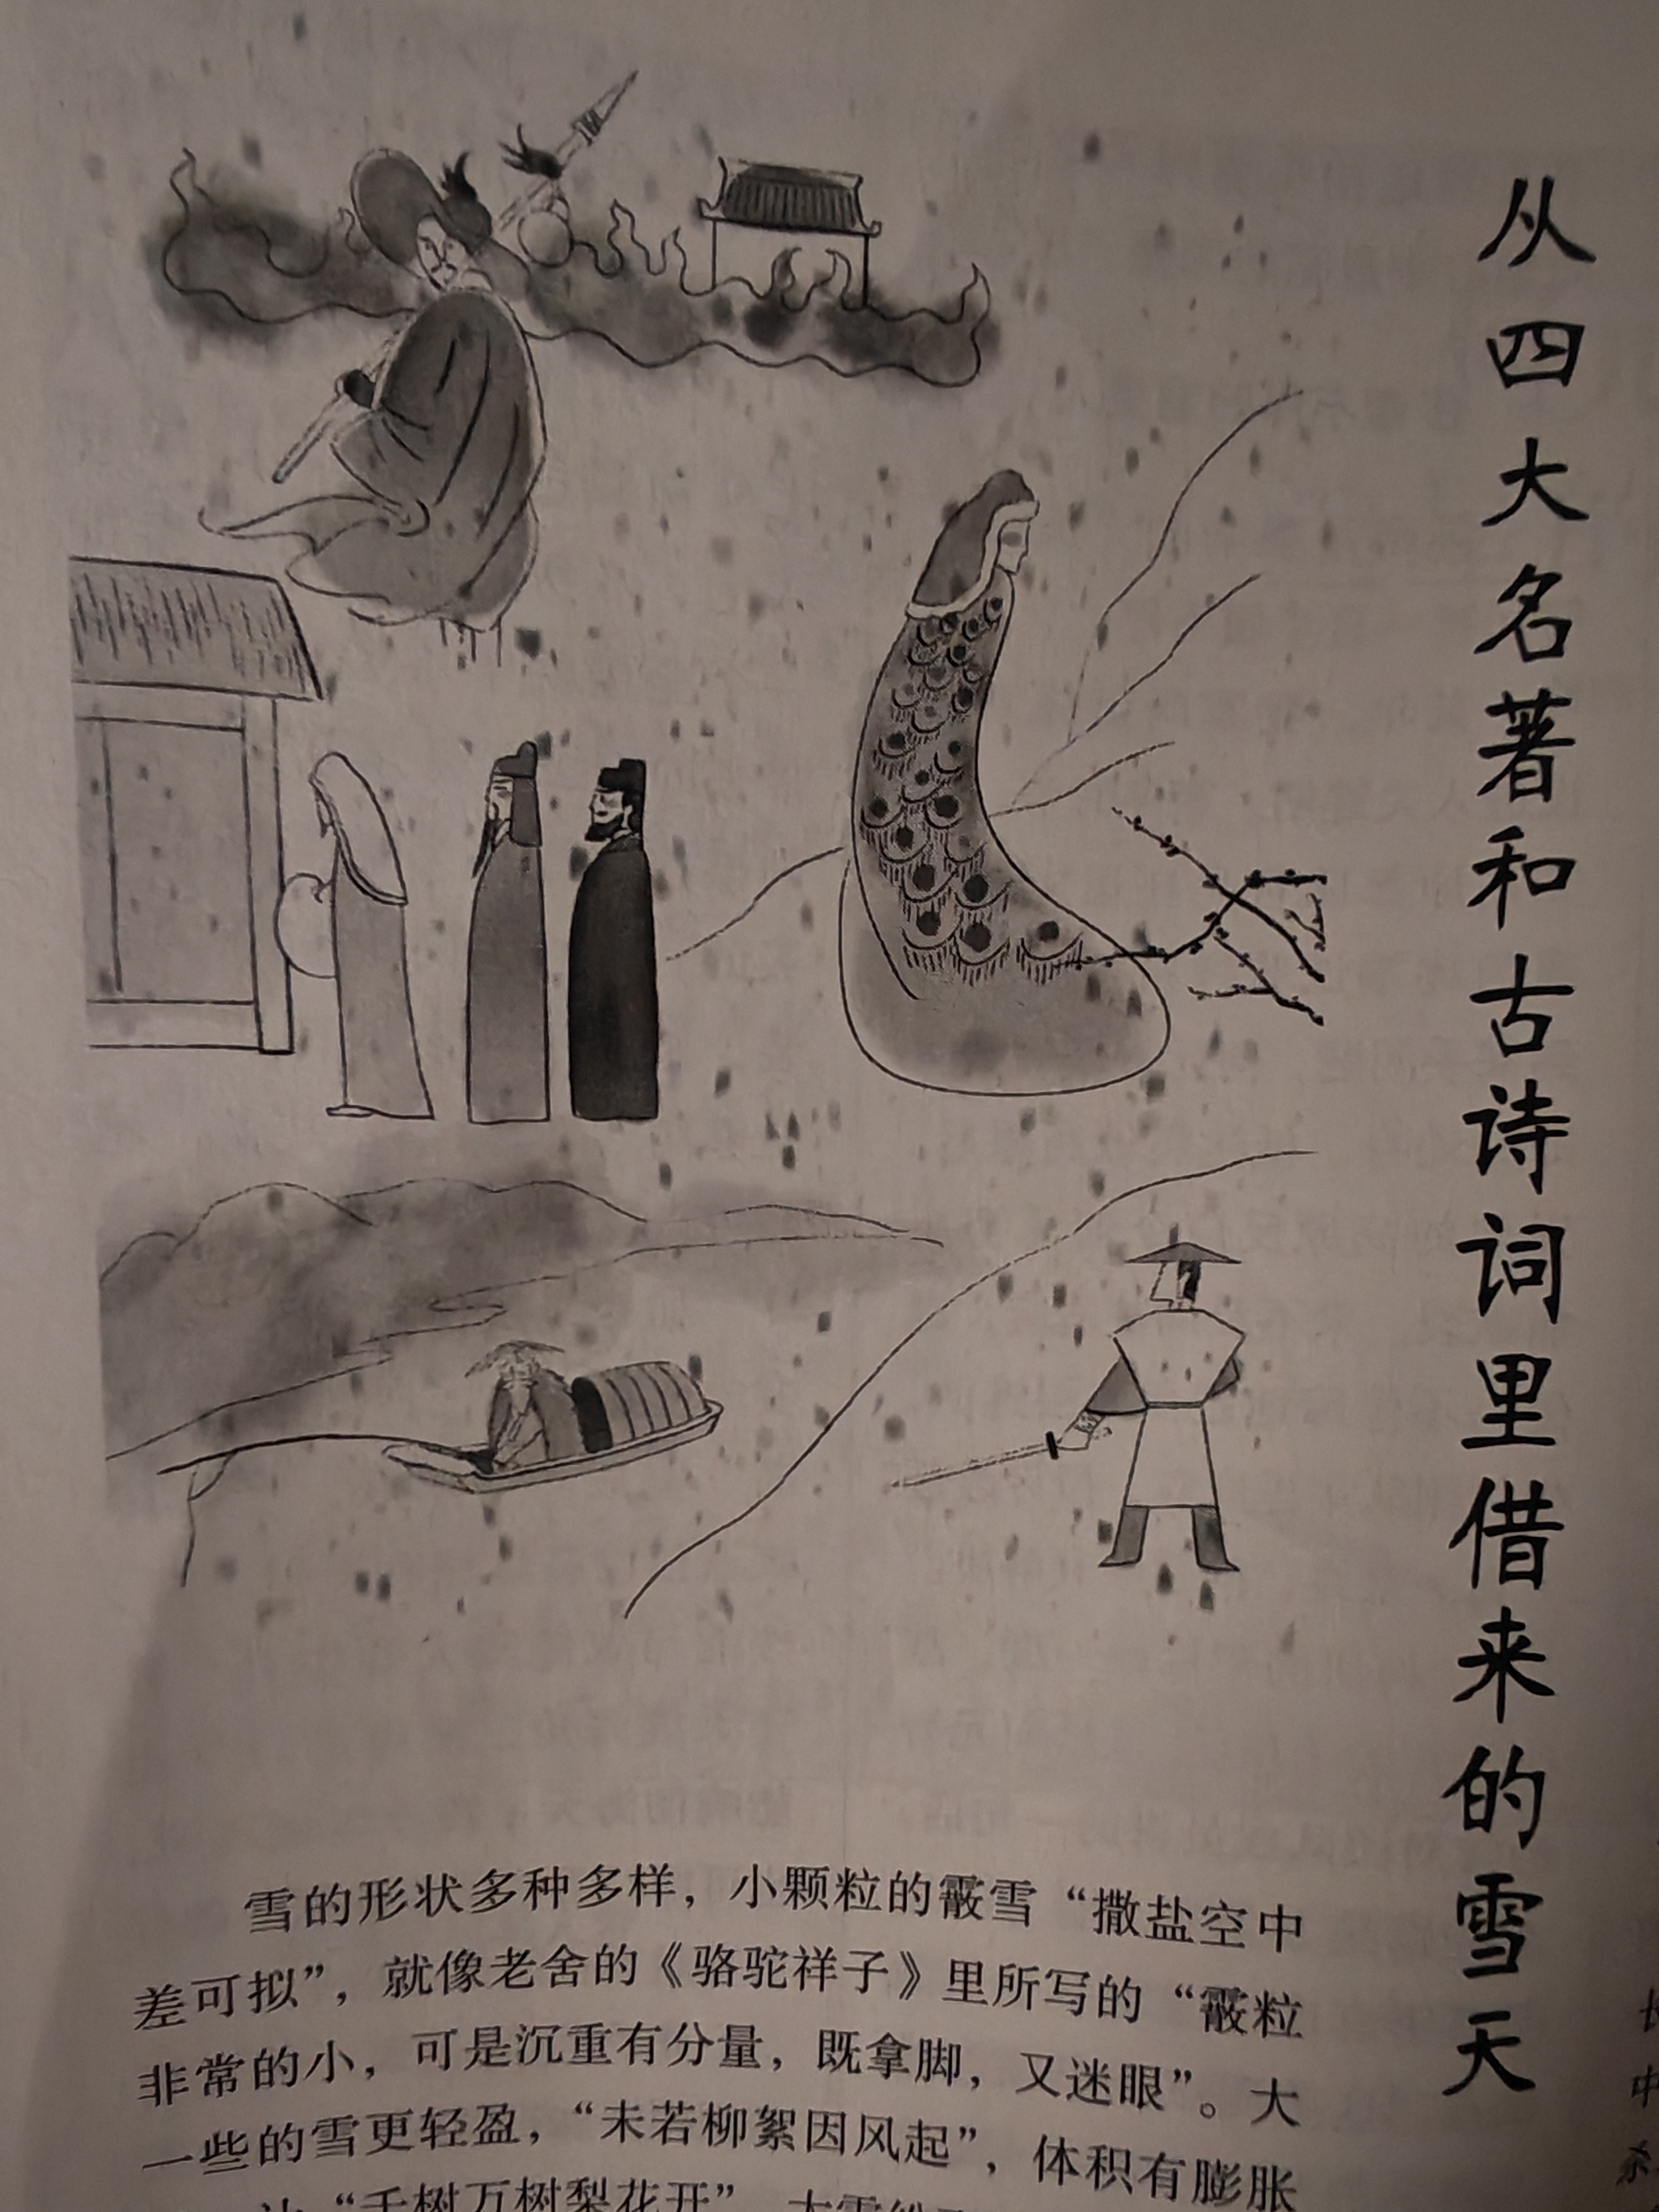 从四大名著和古诗词里借来的雪天
雪的形状多种多样，小颗粒的霰雪“撒盐空中
差可拟”，就像老舍的《骆驼祥子》里所写的“霰粒
非常的小，可是沉重有分量，既拿脚，又迷眼”。大
一些的雪更轻盈，“未若柳絮因风起”，体积有膨胀
“千树万树梨花开”